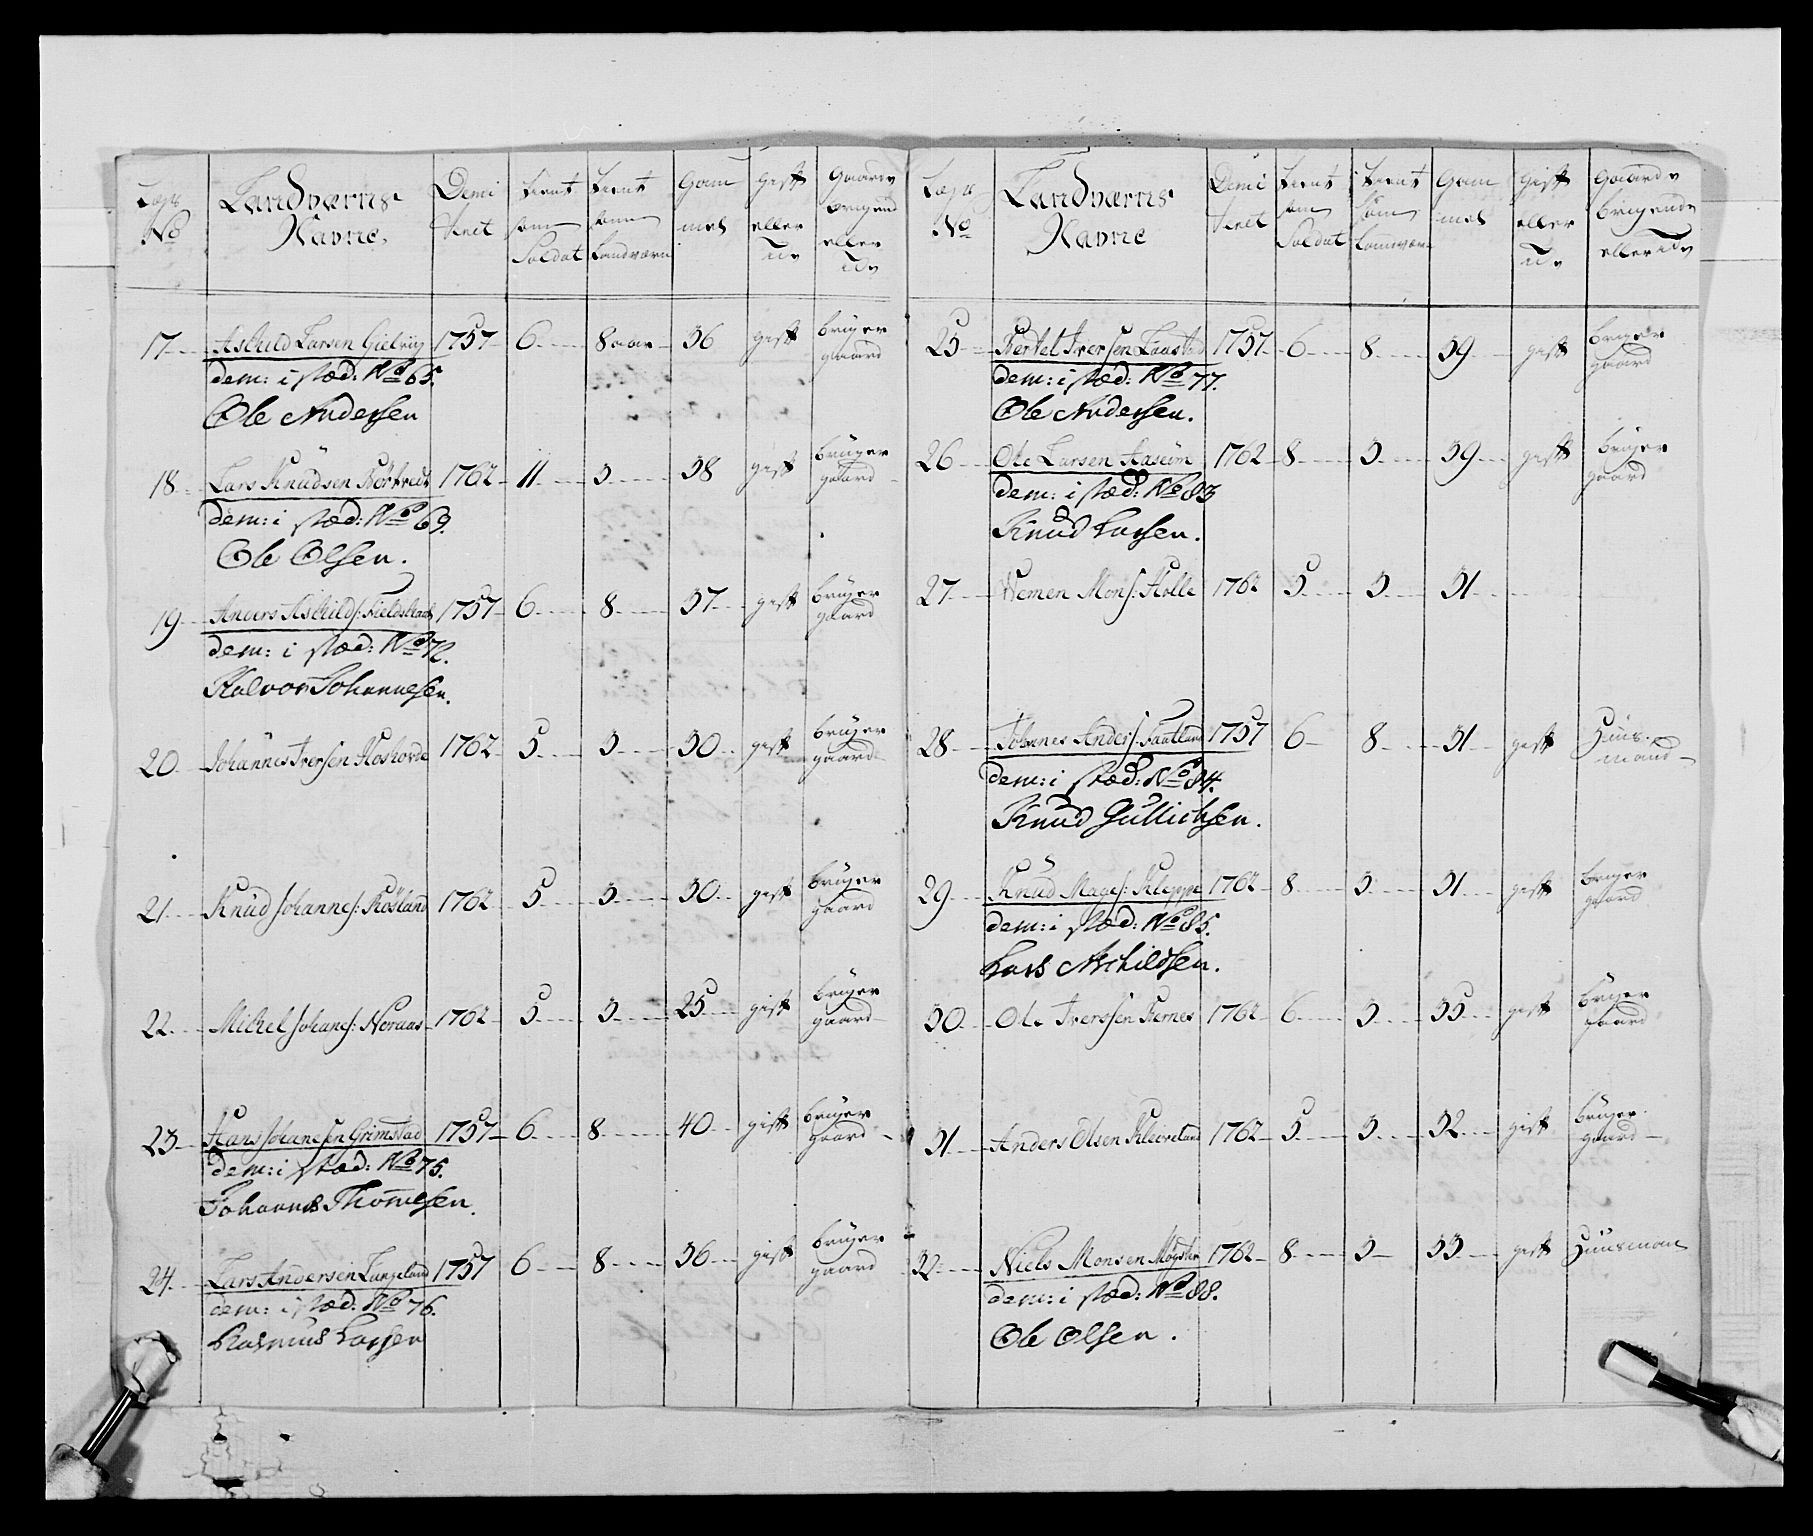 Lægs No
Landværns Navne.
Demi terit
tient som Soldat
tient som Landværn
Gam mel
gift eller Ey
Gaard brugend eller Ey
17 Askild Larsen Gielvig 1757 6 8 aar 36 gift bruger gaard
dem: i stæd: No 65.
Ole Andersen
18 Lars Knudsen 1762 11 3 38 gift bruger gaard
dem: i stæd: No 69.
Ole Olsen.
19 Anders Askilds: Fieldskaal 1757 6 8 37 gift bruger gaard
dem: i stæd: No 72.
Halvor Johannesen.
20 Johannes Iversen Hoshovde 1762 5 3 30 gift bruger gaard
21 Knud Johannes: Røsland 1762 5 3 30 gift bruger gaard
22 Mikel Johanes: Neraas 1762 5 3 25 gift bruger gaard
23 Hans Johanesen Grimstad 1757 6 8 40 gift bruger gaard
dem: i stæd: No 75.
Johannes Thomesen.
24 Lars Andersen Langeland 1757 6 8 36 gift bruger gaard
dem: i stæd: No 76.
Rasmus Larsen
Lægs No
Landværns Navne
Demi terit
tient som Soldat
tient som Landværn
Gam mel
gift eller Ey
Gaard brugende eller Ey
25 Bertel Iversen 1757 6 8 39 gift bruger gaard
dem: i stæd: No 77.
Ole Andersen.
26 Ole Larsen Aaseim 1762 8 3 39 gift bruger gaard
dem: i stæd: No 83
Knud Larsen.
27 Mons: Holle 1762 5 3 31
28 Johannes Anders: Fantland 1757 6 8 31 gift Huus mand
dem: i stæd: No 84.
Knud Gullichsen.
29 Knud Mages: Kleppe 1762 8 3 31 gift bruger gaard
dem: i stæd: No 85.
Lars Aschildsen.
30 Ole Iverssen Bernes 1762 6 3 35 gift bruger gaard
31 Anders Olsen Kleveland 1762 5 3 32 gift bruger gaard
32 Niels Monsen Møgster 1762 8 3 33 gift Huusman
dem: i stæd: No 88.
Ole Olsen.